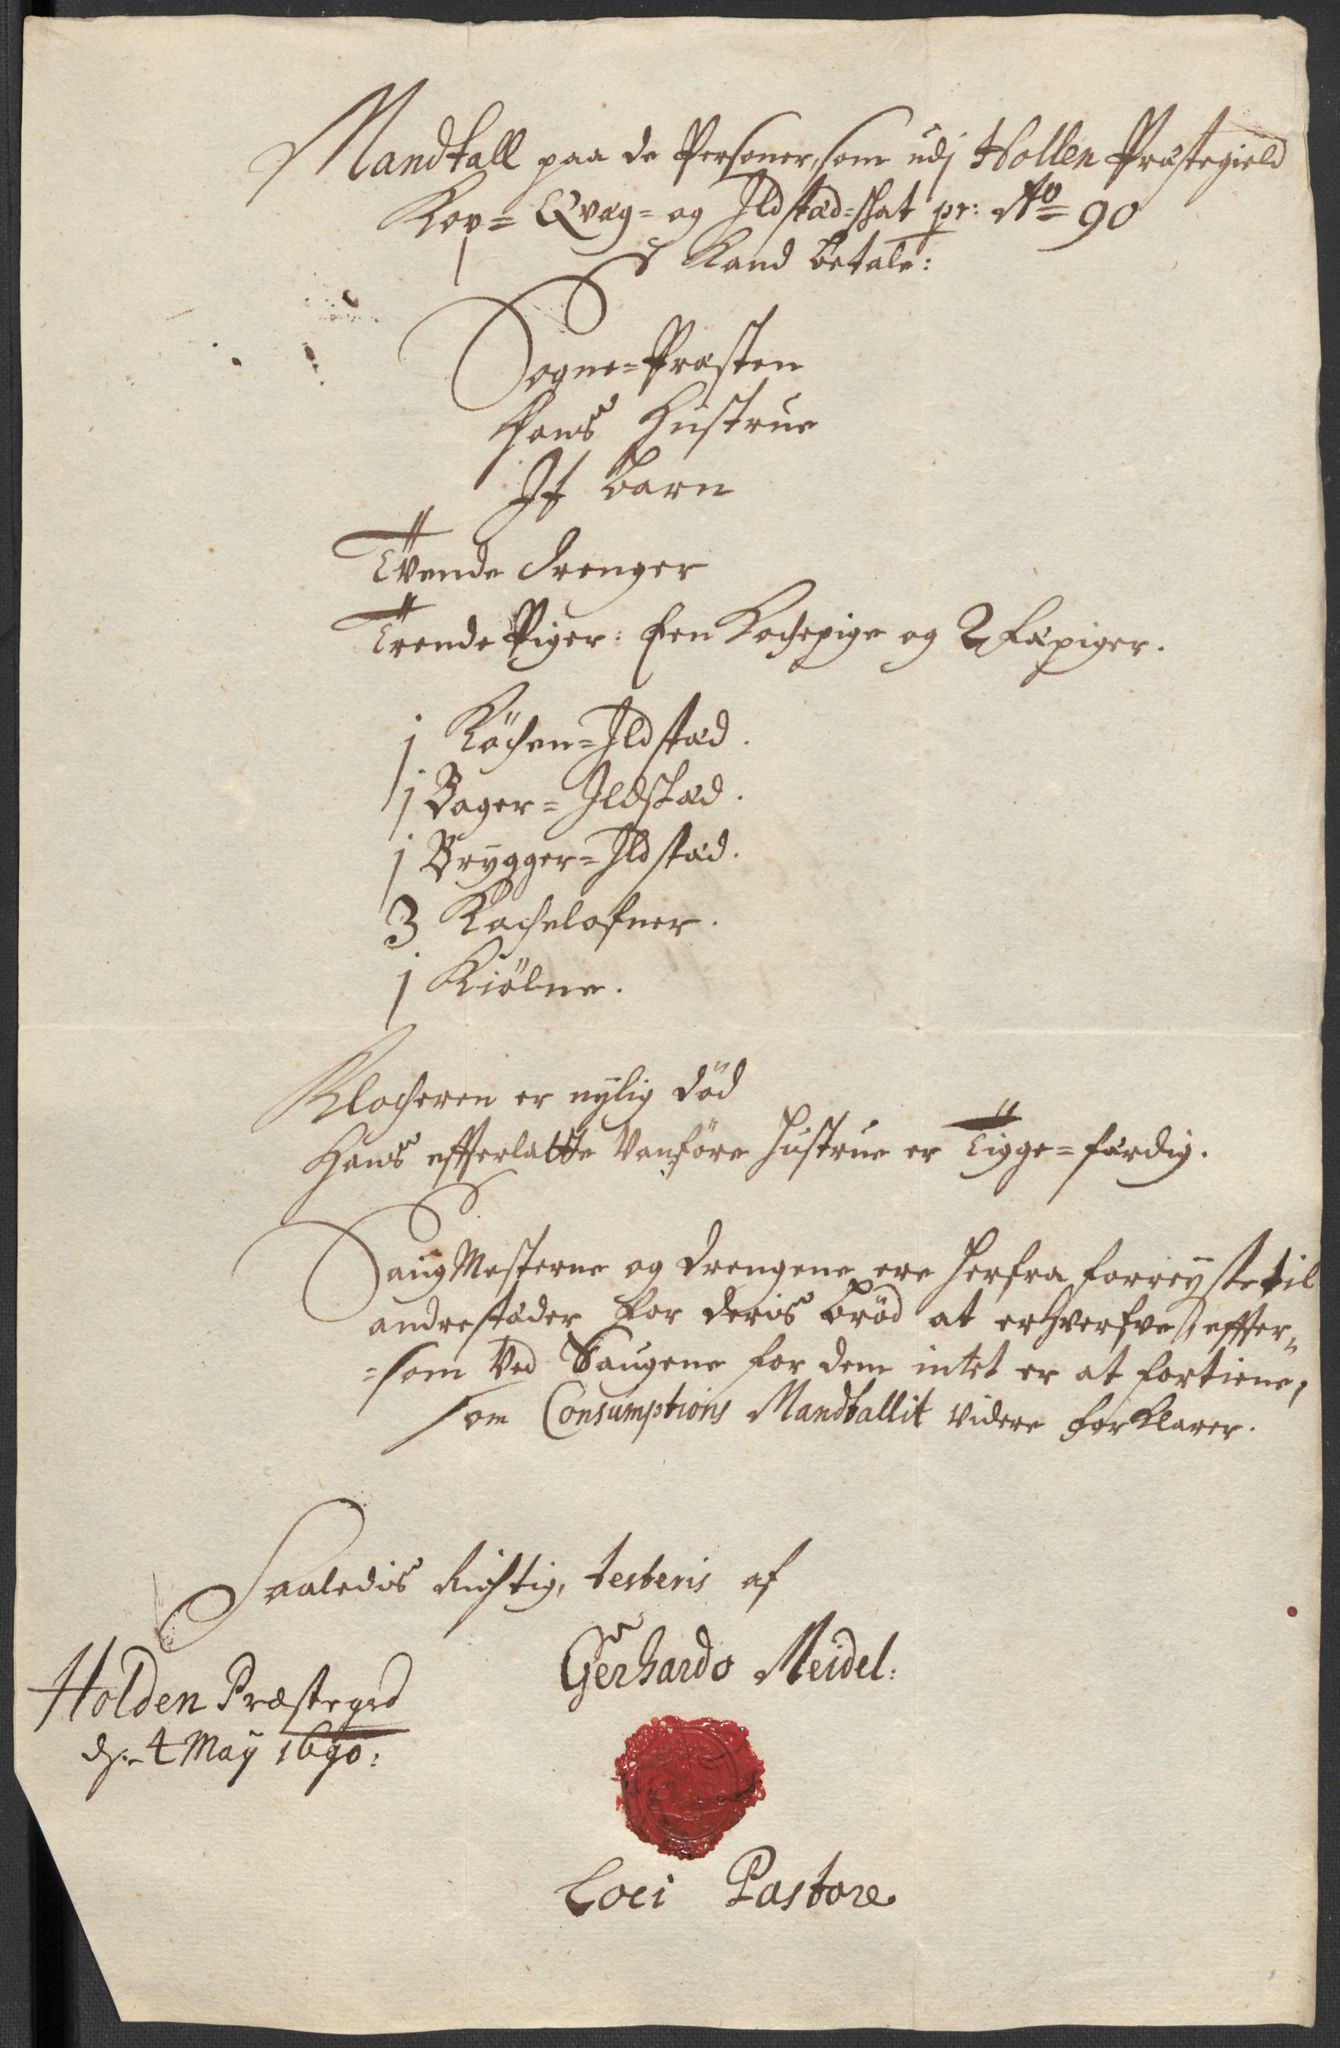 Mandtall paa de Personer, som udj Hollen Præstegield
Kop= Qvæg= og Ildstæd=skat pr: Ao 90
Kand betale:
Sogne=Præsten
Hans Hustrue
It Barn
Tvende Drenger
Trende Piger: Een Kochepige og 2 Fæpiger.
1 Köchen=Ildstæd.
1 Bager=Ildstæd.
1 Brygger=Ildstæd.
3 Kachelofner.
1 Kiölne.
Klocheren er nylig död
Hans effterlatte Vanföre Hustrue er Tigge=færdig.
Saug Mesterne og Drengene ere herfra forreyste til
andre stæder for deris bröd at erhverfve, effter=
=som Ved Saugene for dem intet er at fortiene,
som Consumptions Mandtallit videre forklarer.
Saaledis Richtig, testeris af
Gerhardo Meidel:
Holden Præstegrd
d. 4 May 1690:
Loci Pastore